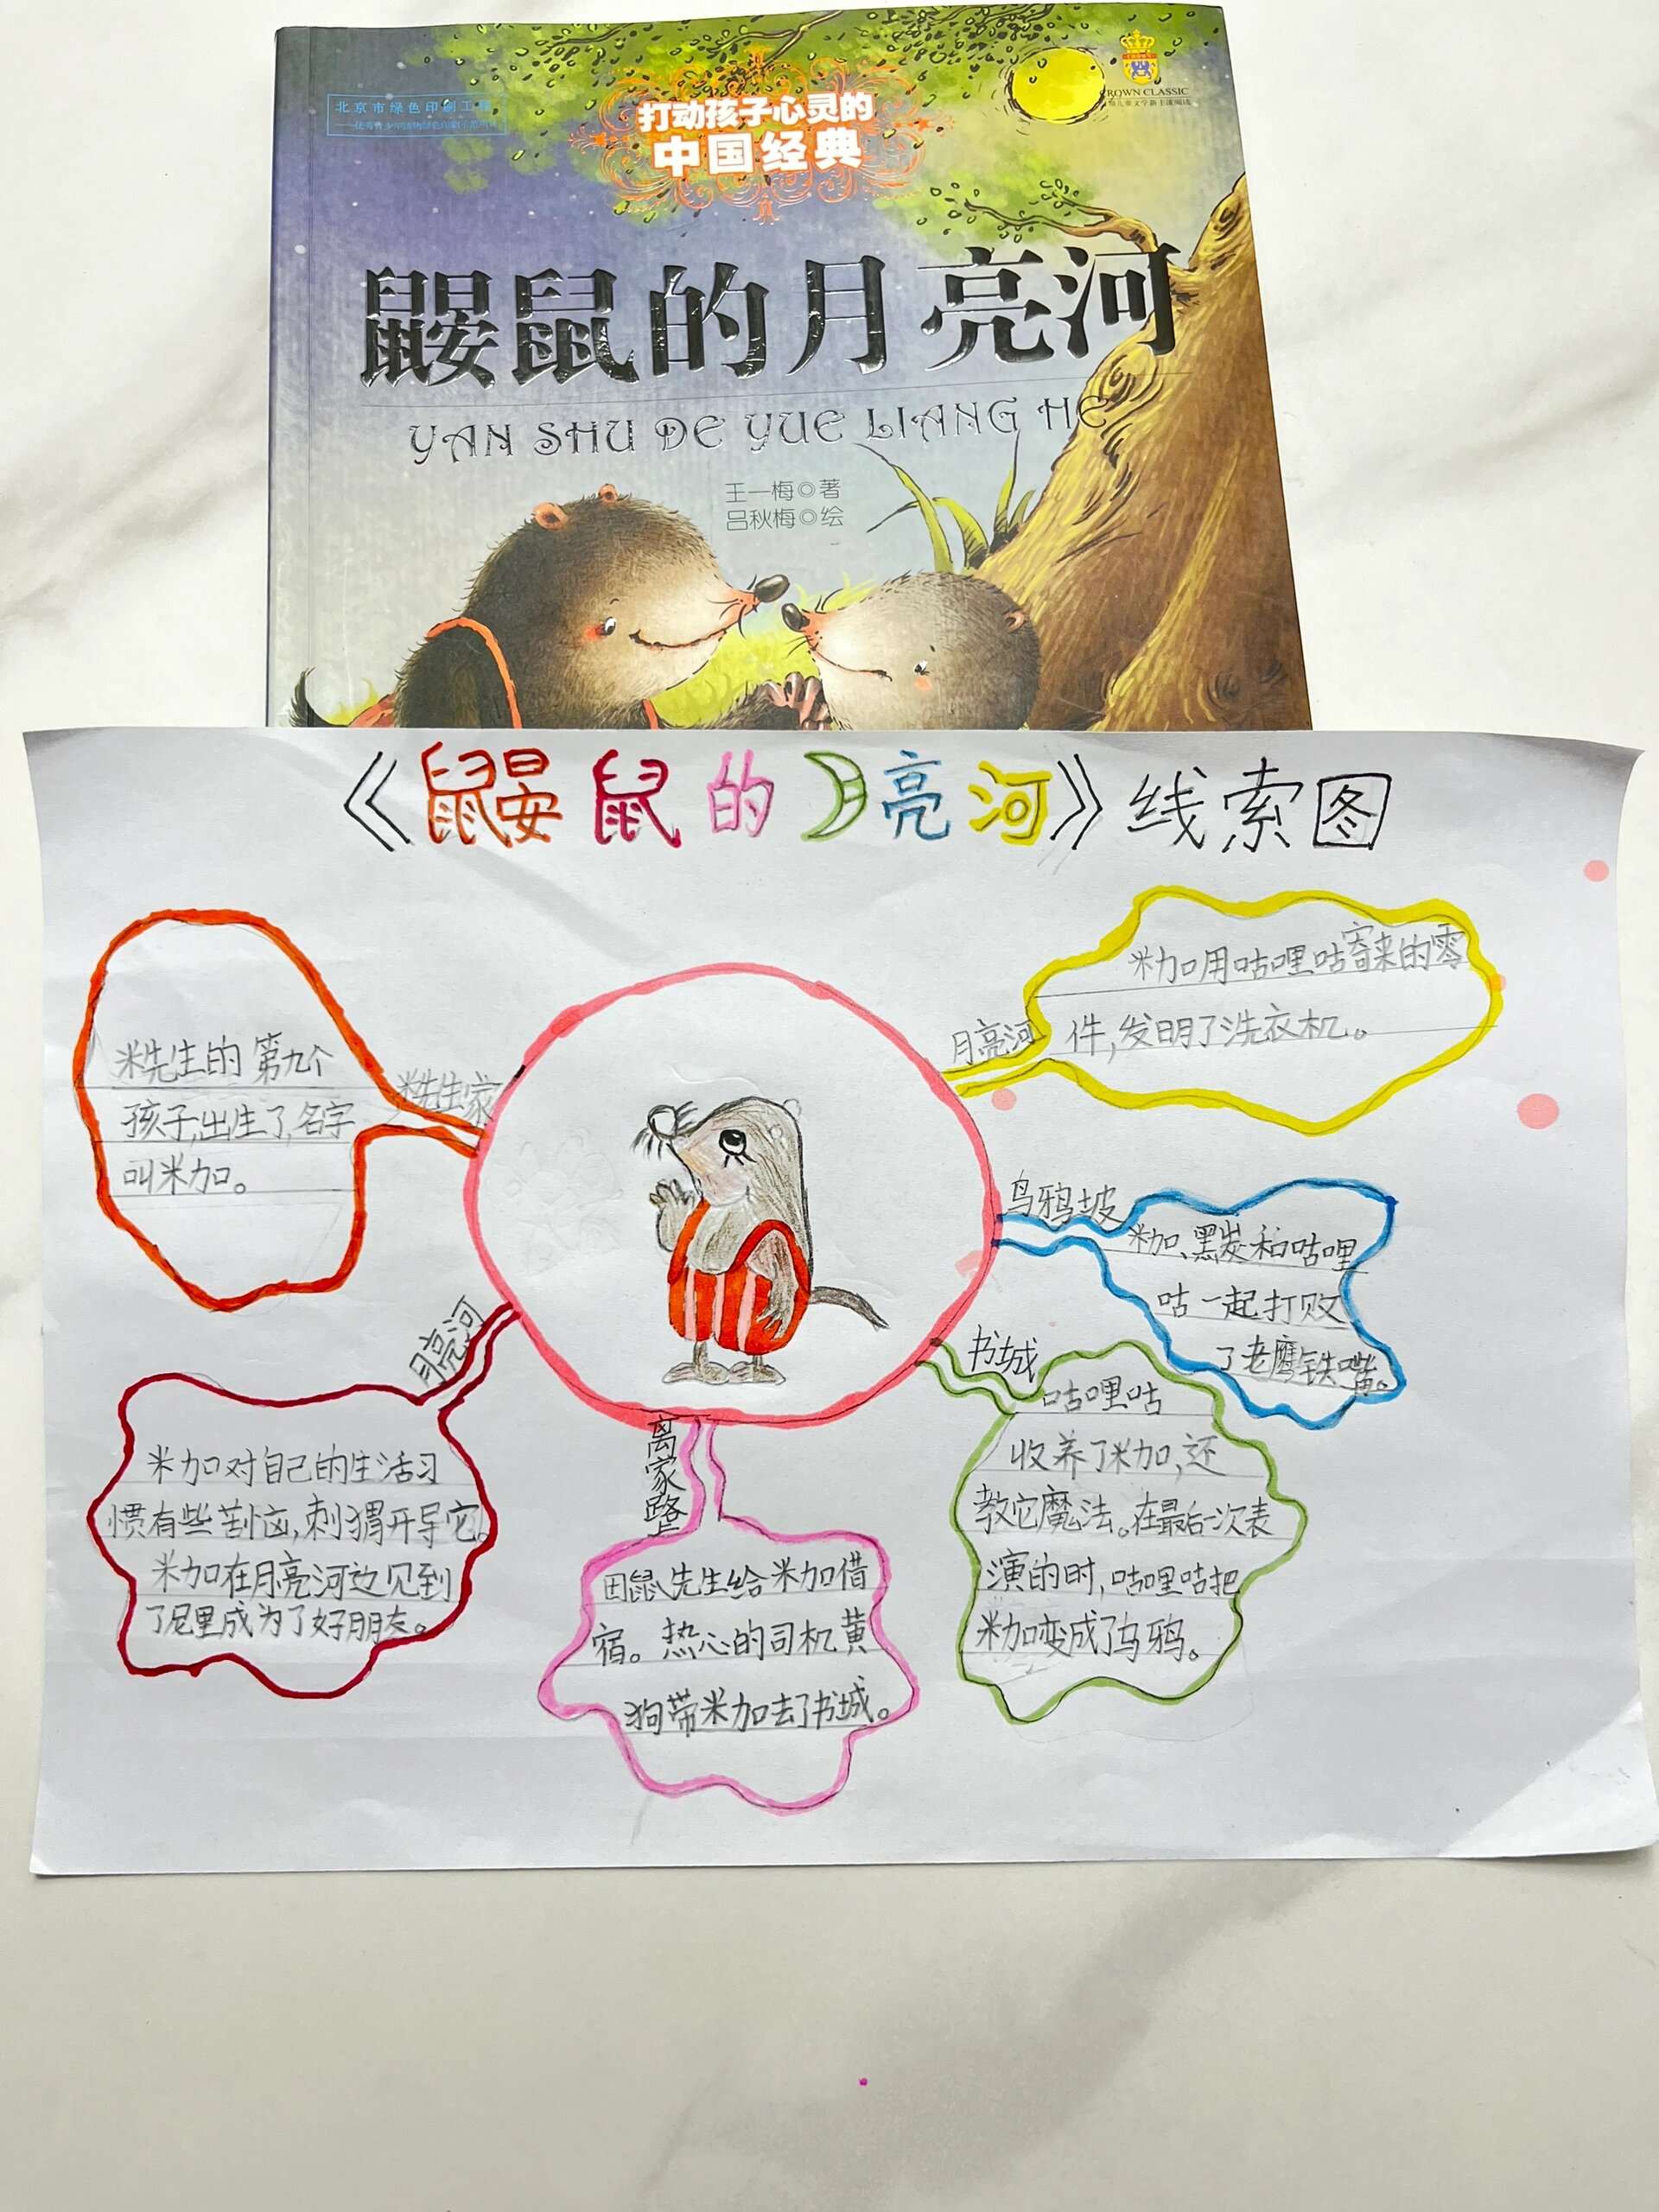 北京市绿色印刷工程
打动孩子心灵的
中国经典
CROWN CLASSIC
鼹鼠的月亮河
YAN SHU DE YUE LIANG HE
王一梅◎著
吕秋梅◎绘
《鼹鼠的月亮河》线索图
米先生家
米先生的第九个
孩子,出生了,名字
叫米加。
月亮河
米加对自己的生活习
惯有些苦恼,刺猬开导它。
米加在月亮河边见到
了尼里成为了好朋友。
离家路上
田鼠先生给米加借
宿。热心的司机黄
狗带米加去了书城。
书城
咕哩咕
收养了米加,还
教它魔法。在最后一次表
演的时,咕哩咕把
米加变成了乌鸦。
乌鸦坡
米加、黑炭和咕哩
咕一起打败
了老鹰铁嘴。
月亮河
米加用咕哩咕寄来的零
件,发明了洗衣机。